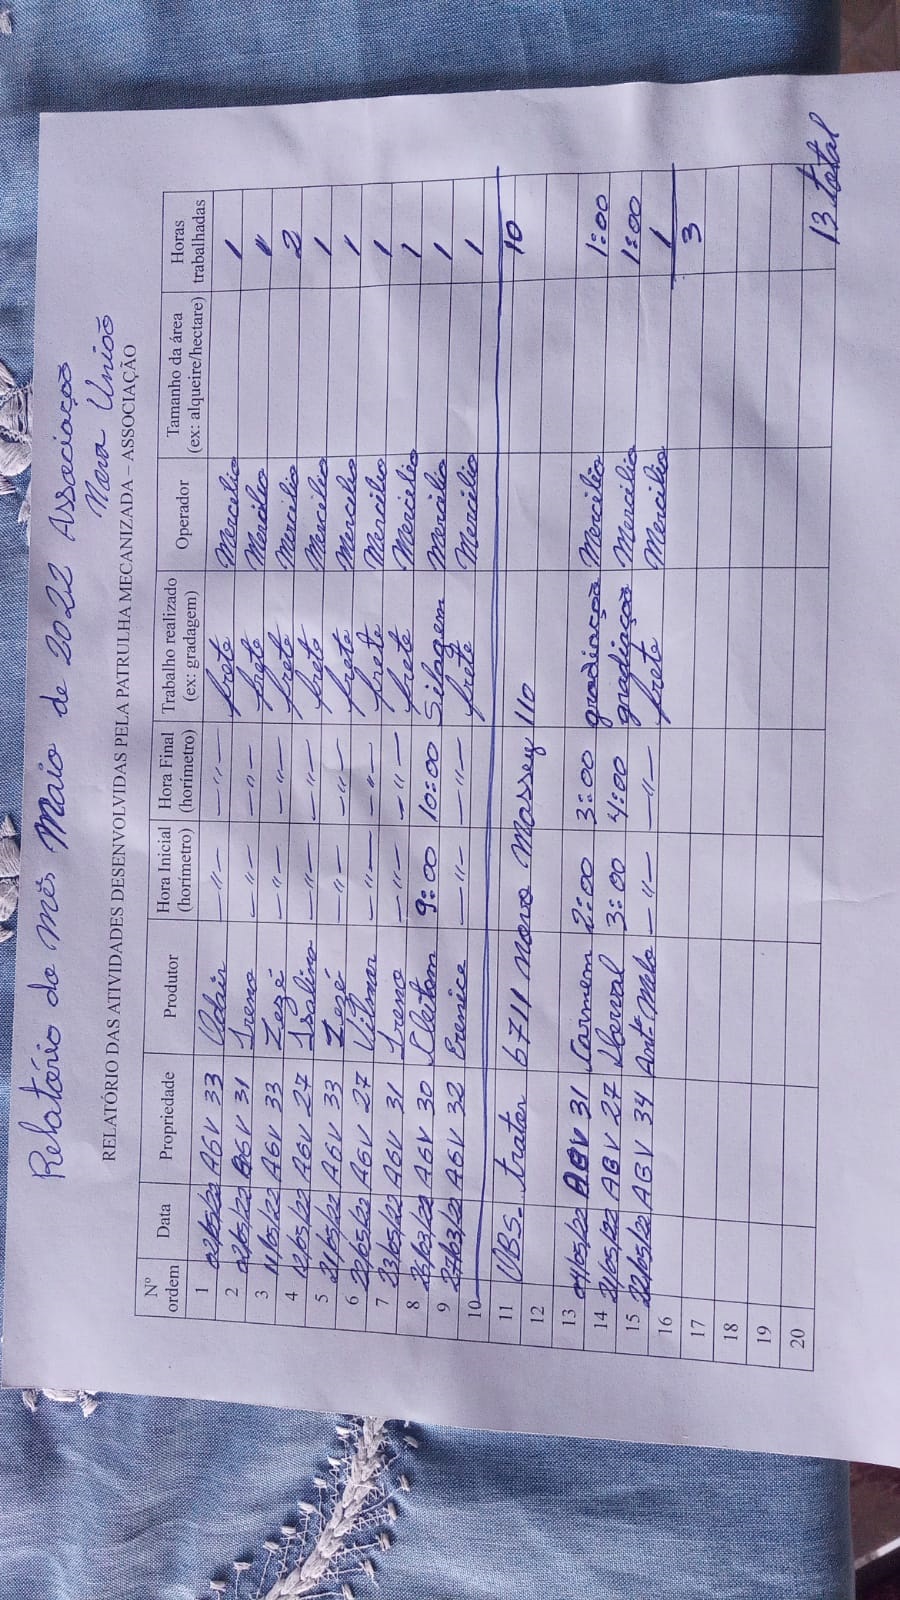 Relatório do mês Maio de 2022 Associação
Nova União
RELATÓRIO DAS ATIVIDADES DESENVOLVIDAS PELA PATRULHA MECANIZADA – ASSOCIAÇÃO
Nº ordem Data Propriedade Produtor Hora Inicial (horímetro) Hora Final (horímetro) Trabalho realizado (ex: gradagem) Operador Tamanho da área (ex: alqueire/hectare) Horas trabalhadas
1 02/05/22 AGV 33 Adair —〃— —〃— frete Mercilio 1
2 02/05/22 AGV 31 Ireno —〃— —〃— frete Mercilio 〃
3 11/05/22 AGV 33 Zezé —〃— —〃— frete Mercilio 2
4 12/05/22 AGV 27 Isalino —〃— —〃— frete Mercilio 1
5 21/05/22 AGV 33 Zezé —〃— —〃— frete Mercilio 1
6 22/05/22 AGV 27 Vilmar —〃— —〃— frete Mercilio 1
7 23/05/22 AGV 31 Ireno —〃— —〃— frete Mercilio 1
8 26/03/22 AGV 30 Cleitom 9:00 10:00 Silagem Mercilio 1
9 27/03/22 AGV 32 Erenice —〃— —〃— frete Mercilio 1
10
11 OBS- trator 6711 novo Massey 110 10
12
13 04/05/22 AGV 31 Carmem 2:00 3:00 gradiação Mercilio 1:00
14 21/05/22 AGV 27 3:00 4:00 gradiação Mercilio 1:00
15 22/05/22 AGV 34 Antº Melo —〃— —〃— frete Mercilio 1
16 3
17
18
19
20
13 total